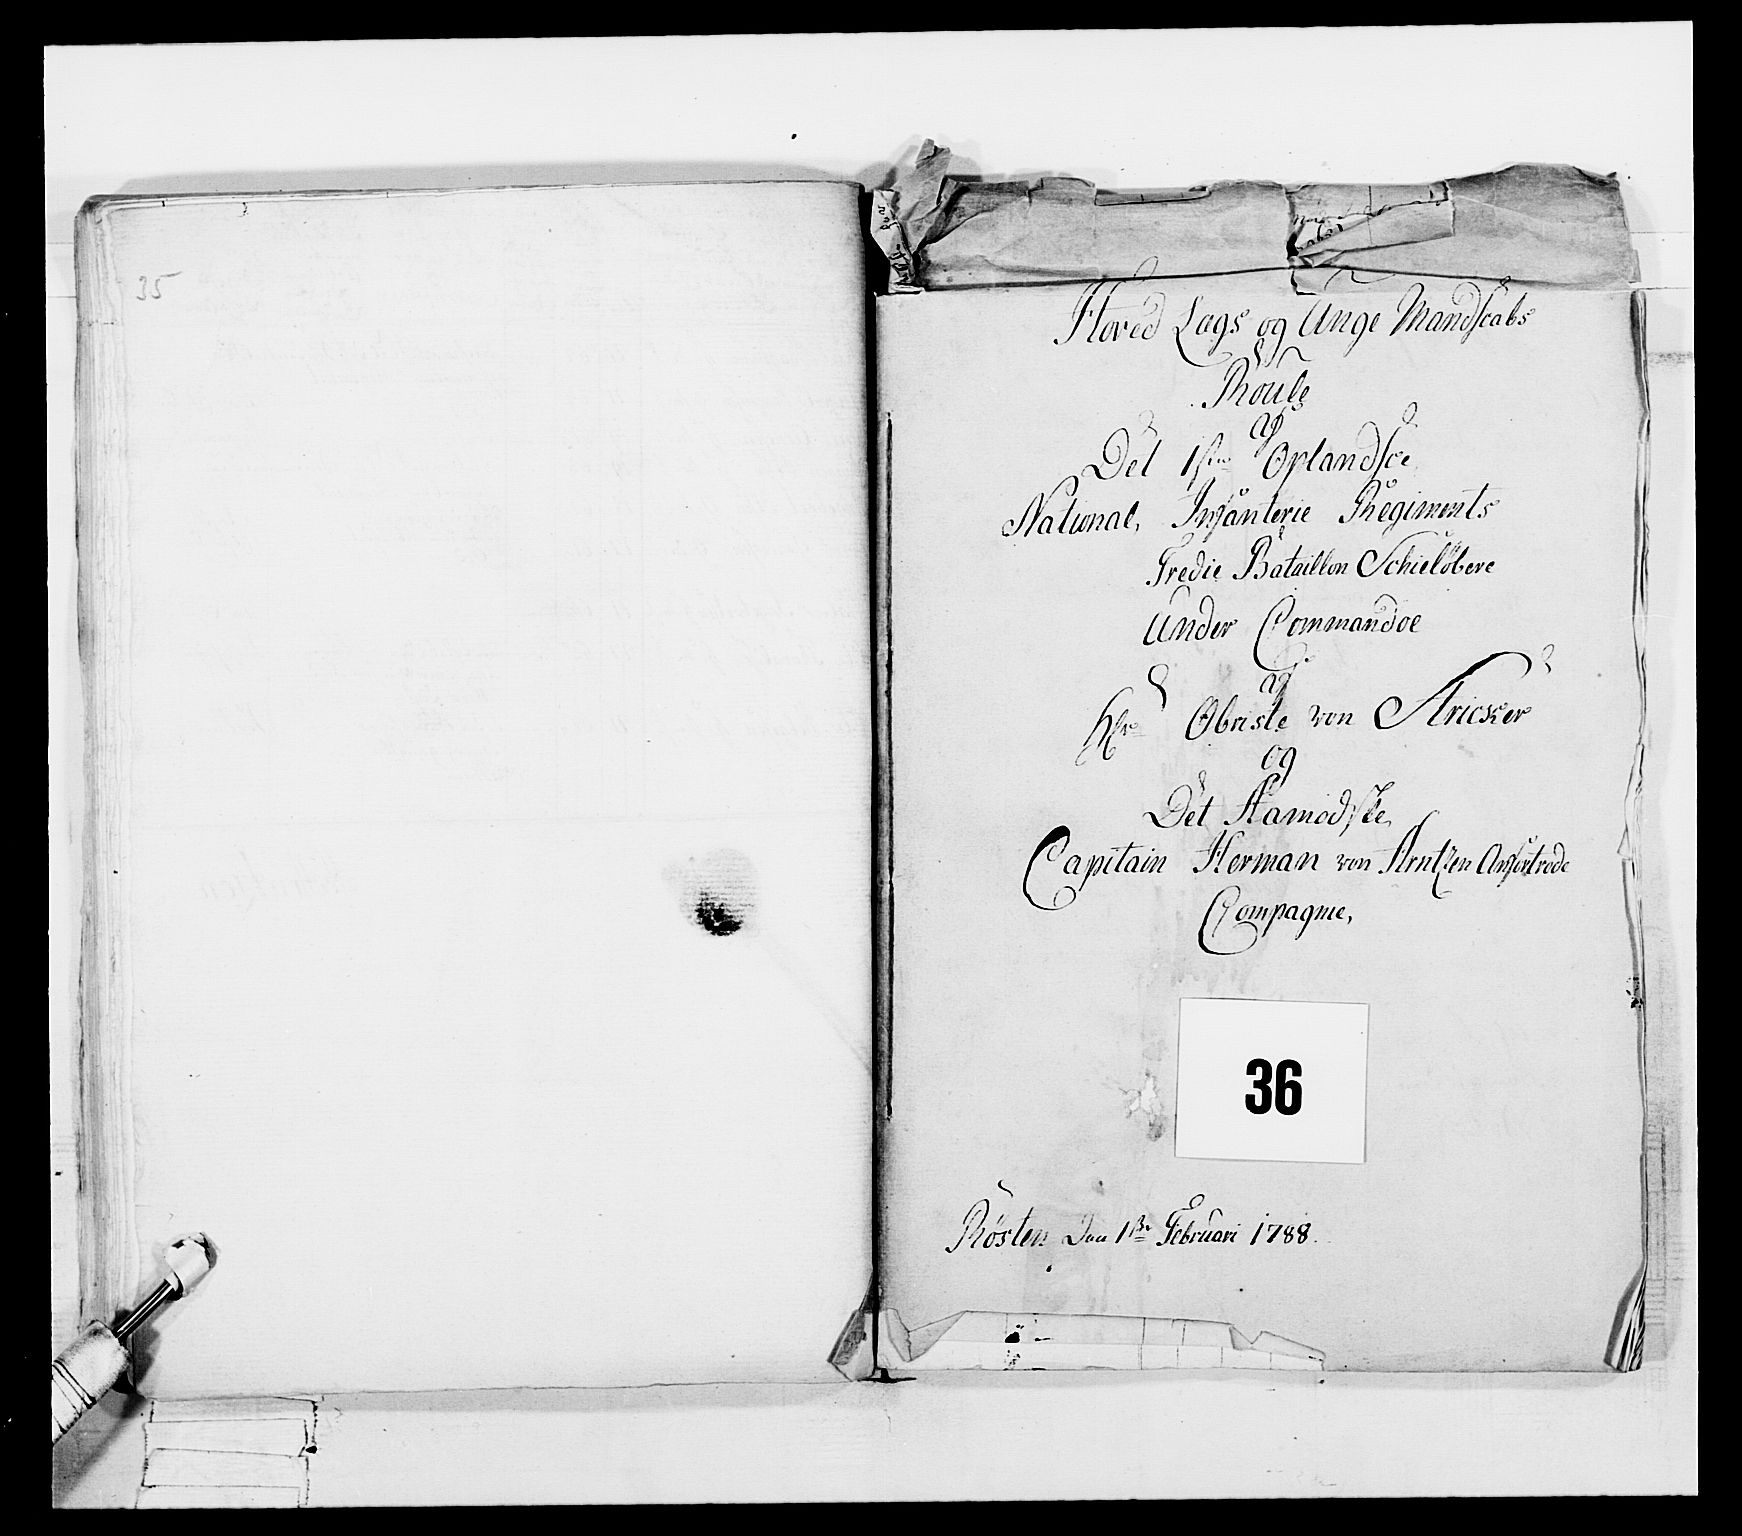 35
Hoved Lags og Unge Mandscabs
Roulle
af
Det 1ste Oplandsce
National, Infanterie Regiments
Tredie Bataillon Schielöbere
Under Commandoe
af
Hr Obriste von Stricker
og
Det Hamodske
Capitain Herman von Arntzen Anfortrode
Compagnie,
36
Rösten Den 1ste Februari 1788.